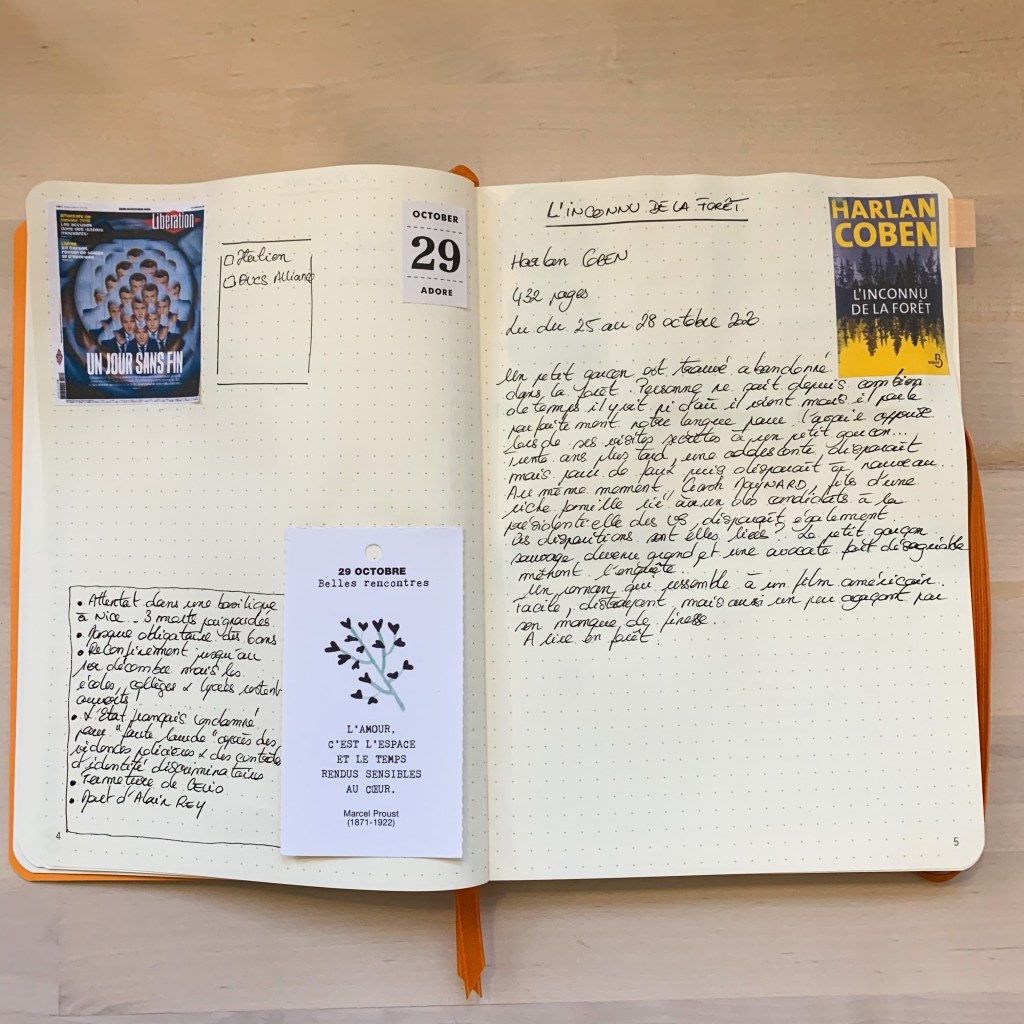 Libération
UN JOUR SANS FIN
Italien
Docs Alliance
OCTOBER
29
ADORE
• Attentat dans une basilique
à Nice _ 3 morts poignardés.
• Masque obligatoire dès 6ans
• Reconfinement jusqu'au
1er décembre mais les
écoles, collèges & lycées restent
ouverts!
• L'Etat français condamné
pour "faute lourde" après des
violences policières & des contrôles
d'identité discriminatoires
• Fermeture de CELIO
• Mort d'Alain REY
4
29 OCTOBRE
Belles rencontres
L'AMOUR,
C'EST L'ESPACE
ET LE TEMPS
RENDUS SENSIBLES
AU CŒUR.
Marcel Proust
(1871-1922)
L'INCONNU DE LA FORÊT
Harlan COBEN
432 pages
Lu du 25 au 28 octobre 2020
Un petit garçon est trouvé abandonné
dans la forêt. Personne ne sait depuis combien
de temps il y vit ni d'où il vient mais il parle
parfaitement notre langue pour l'avoir apprise
lors de ses visites secrètes à un petit garçon...
Trente ans plus tard, une adolescente, disparaît
mais pour de faux puis disparaît à nouveau...
Au même moment, Crash MAYNARD, fils d'une
riche famille lié à un des candidats à la
présidentielle des US, disparaît également.
Les disparitions sont elles liées? Le petit garçon
sauvage devenu grand et une avocate fort désagréable
mènent l'enquête.
Un roman qui ressemble à un film américain.
Facile, distrayant, mais aussi un peu agaçant par
son manque de finesse.
A lire en forêt.
HARLAN
COBEN
L'INCONNU
DE LA FORÊT
5